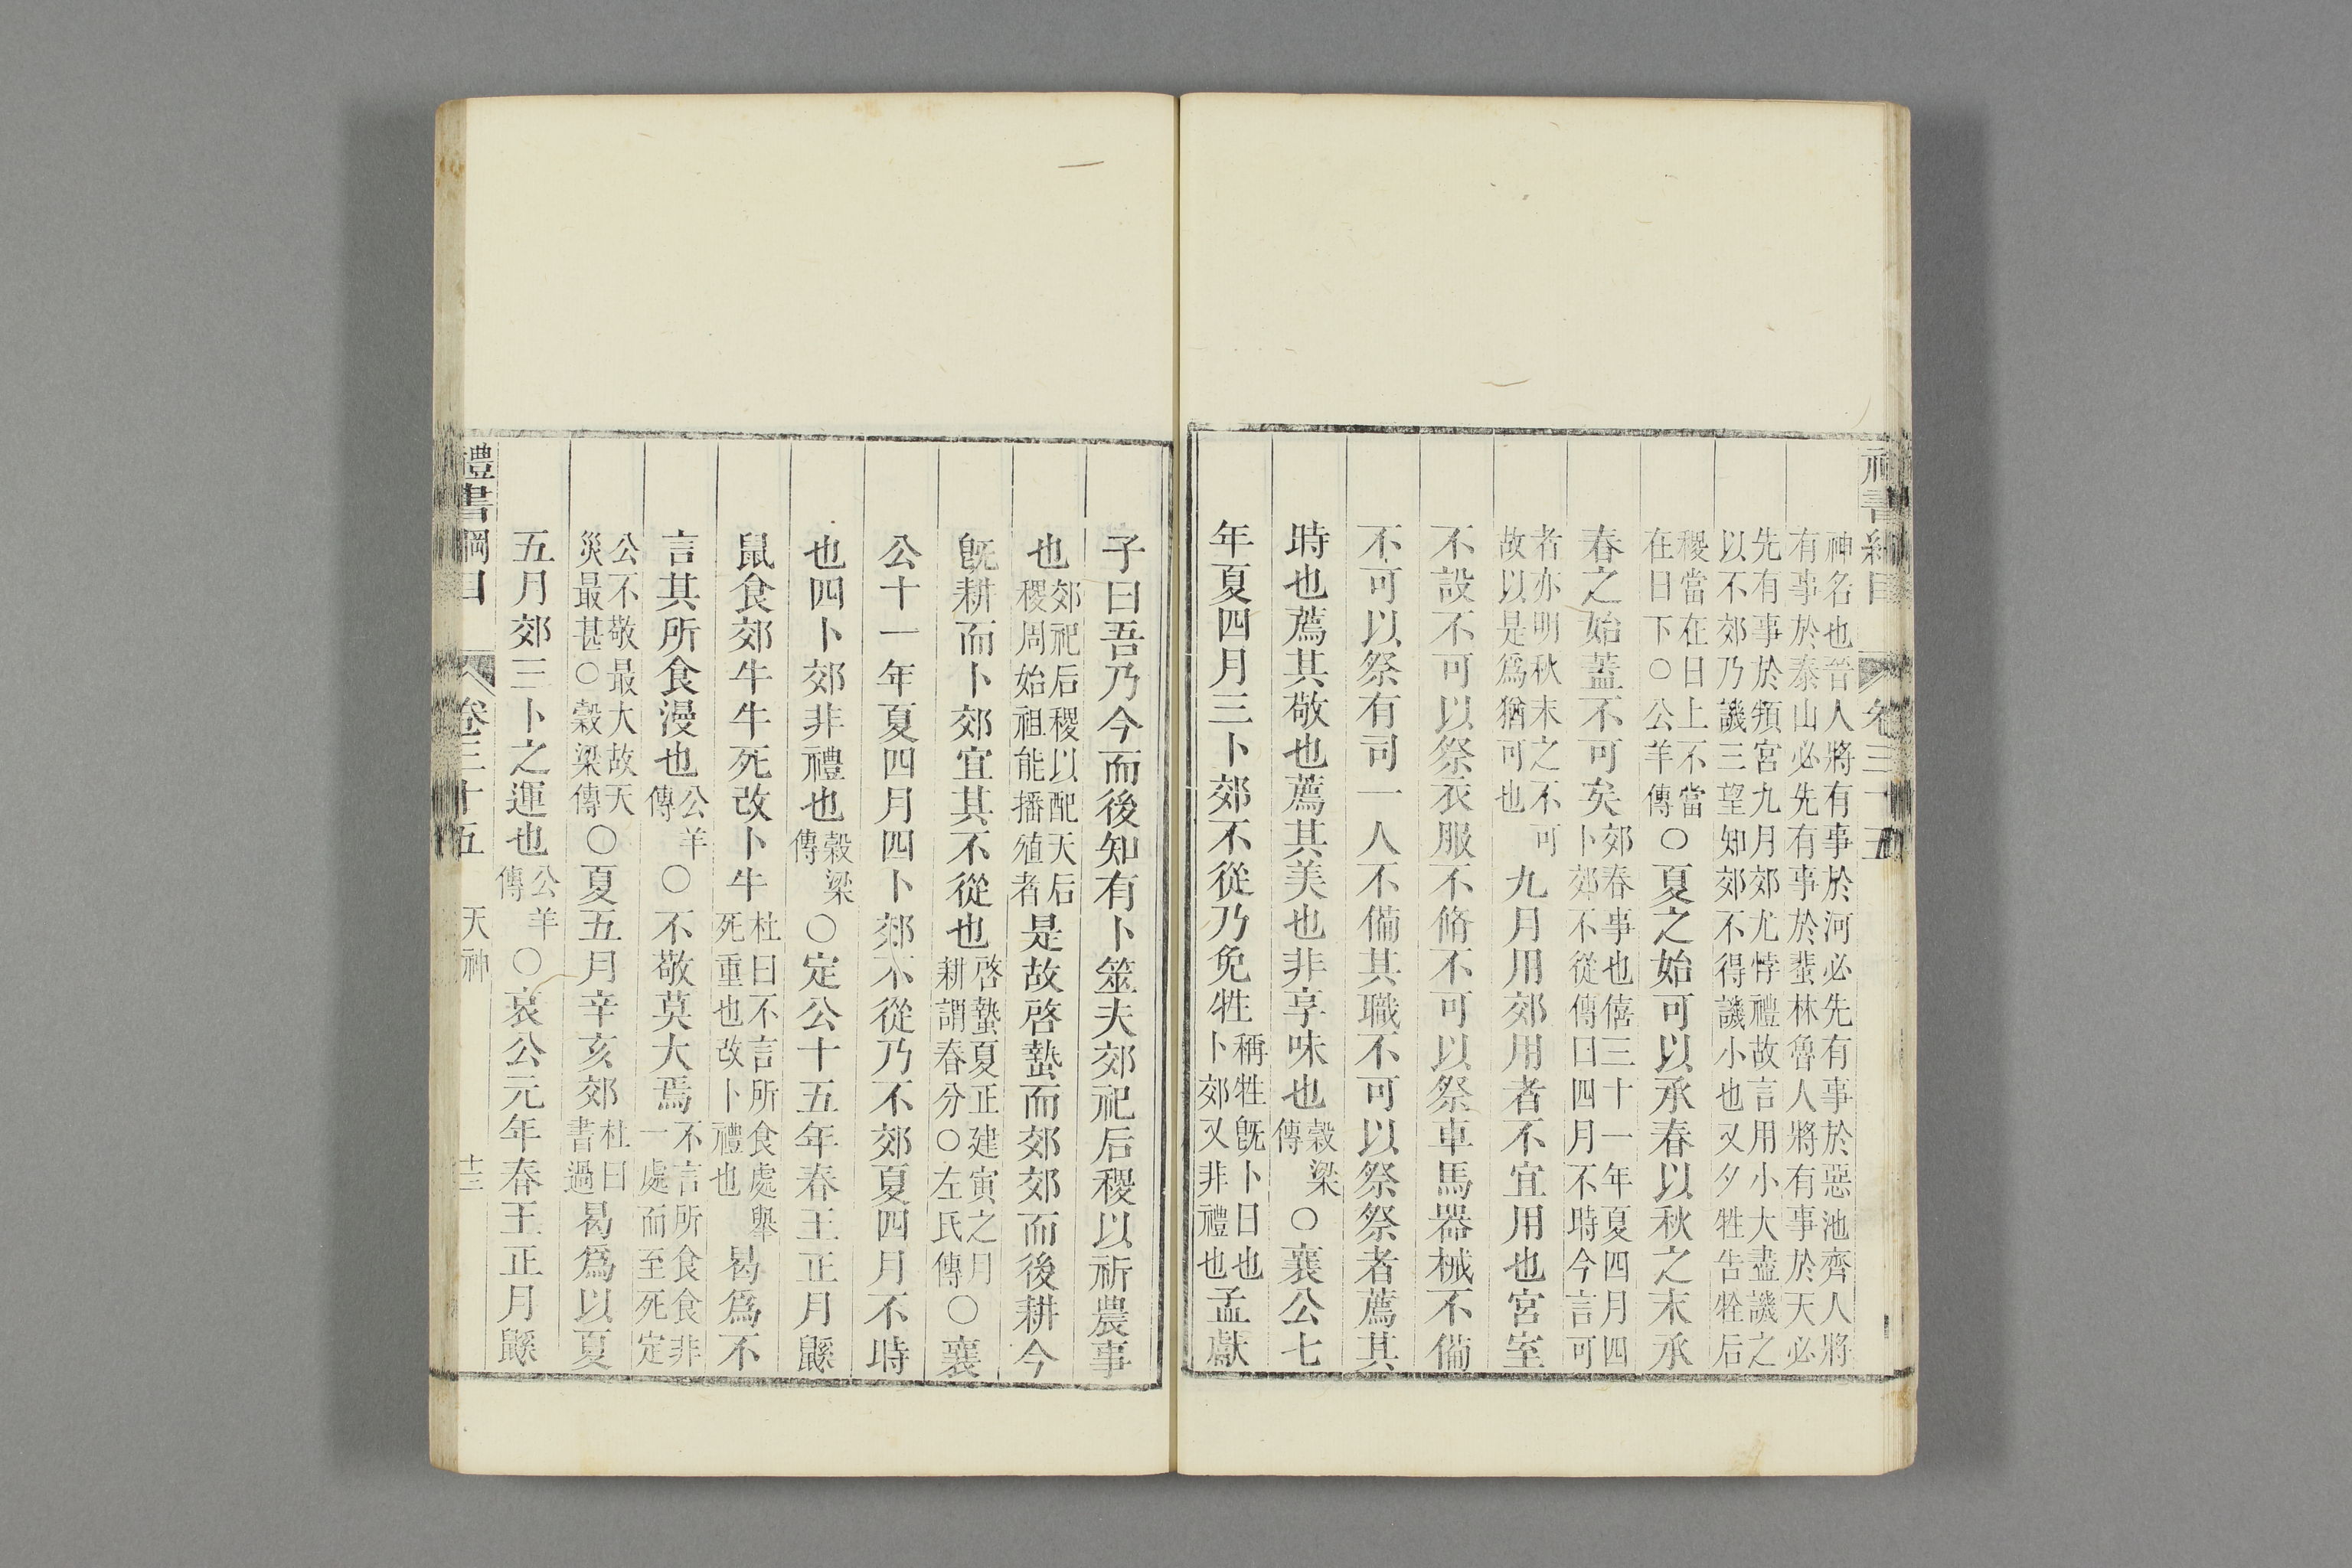 神名也晉人將有事於河必先有事於惡池齊人將
有事於泰山必先有事於蜚林魯人將有事於天必
先有事於頖宮九月郊尤悖禮故言用小大盡譏之
以不郊乃譏三望知郊不得譏小也又夕牲告牷后
稷當在日上不當
在日下○公羊傳
○夏之始可以承春以秋之末承
春之始蓋不可矣
郊春事也僖三十一年夏四月四
卜郊不從傳曰四月不時今言可
者亦明秋末之不可
故以是爲猶可也
九月用郊用者不宜用也宮室
不設不可以祭衣服不脩不可以祭車馬器械不備
不可以祭有司一人不備其職不可以祭祭者薦其
時也薦其敬也薦其美也非享味也
穀梁
傳
○襄公七
年夏四月三卜郊不從乃免牲
稱牲旣卜日也
卜郊又非禮也
孟獻
子曰吾乃今而後知有卜筮夫郊祀后稷以祈農事
也
郊祀后稷以配天后
稷周始祖能播殖者
是故啓蟄而郊郊而後耕今
旣耕而卜郊宜其不從也
啓蟄夏正建寅之月
耕謂春分○左氏傳
○襄
公十一年夏四月四卜郊不從乃不郊夏四月不時
也四卜郊非禮也
穀梁
傳
○定公十五年春王正月鼷
鼠食郊牛牛死改卜牛
杜曰不言所食處舉
死重也改卜禮也
曷爲不
言其所食漫也
公羊
傳
○不敬莫大焉
不言所食食非
一處而至死定
公不敬最大故天
災最甚○穀梁傳
○夏五月辛亥郊
杜曰
書過
曷爲以夏
五月郊三卜之運也
公羊
傳
○哀公元年春王正月鼷
禮書綱目
卷三十五
天神
十三